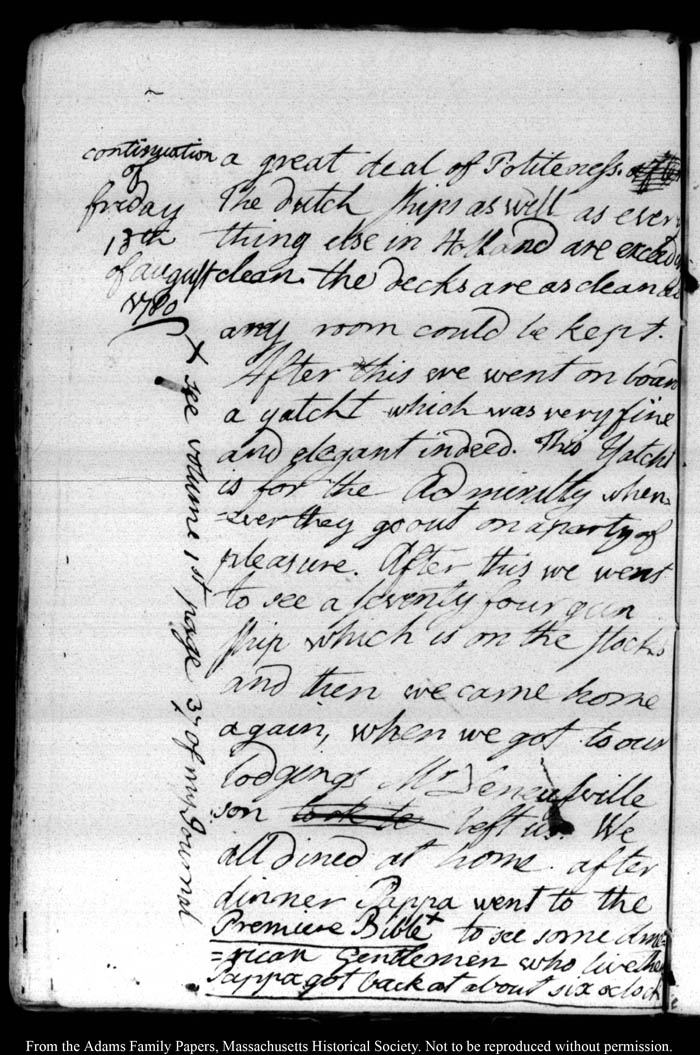 continuation
of
friday
18th
of august
1780
a great deal of Politeness.
The dutch ships as well as every
thing else in Holland are
clean. the decks are as clean as
any room could be kept.
After this we went on board
a yatcht which was very fine
and elegant indeed. This Yatcht
is for the Admiralty when-
=ever they go out on a party of
pleasure. After this we went
to see a seventy four gun
ship which is on the stocks
and then we came home
again, when we got to our
lodgings Mr Deneufville
son left us. We
all dined at home after
dinner Pappa went to the
Premiere Bible+ to see some Ame-
=rican Gentlemen who live there
Pappa got back at about six oclock
+ see volume 1st page 37 of my Journal
From the Adams Family Papers, Massachusetts Historical Society. Not to be reproduced without permission.